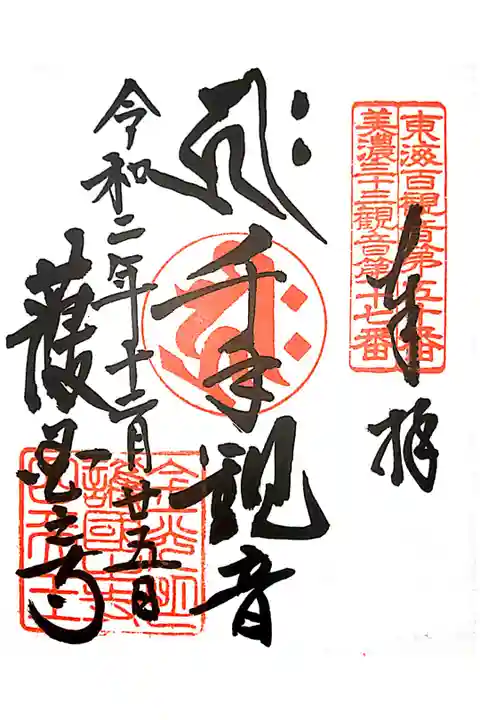 東海百観音第五十番
美濃三十三観音第十七番
奉拝
千手観音
令和二年十二月廿五日
護国之寺
金光明